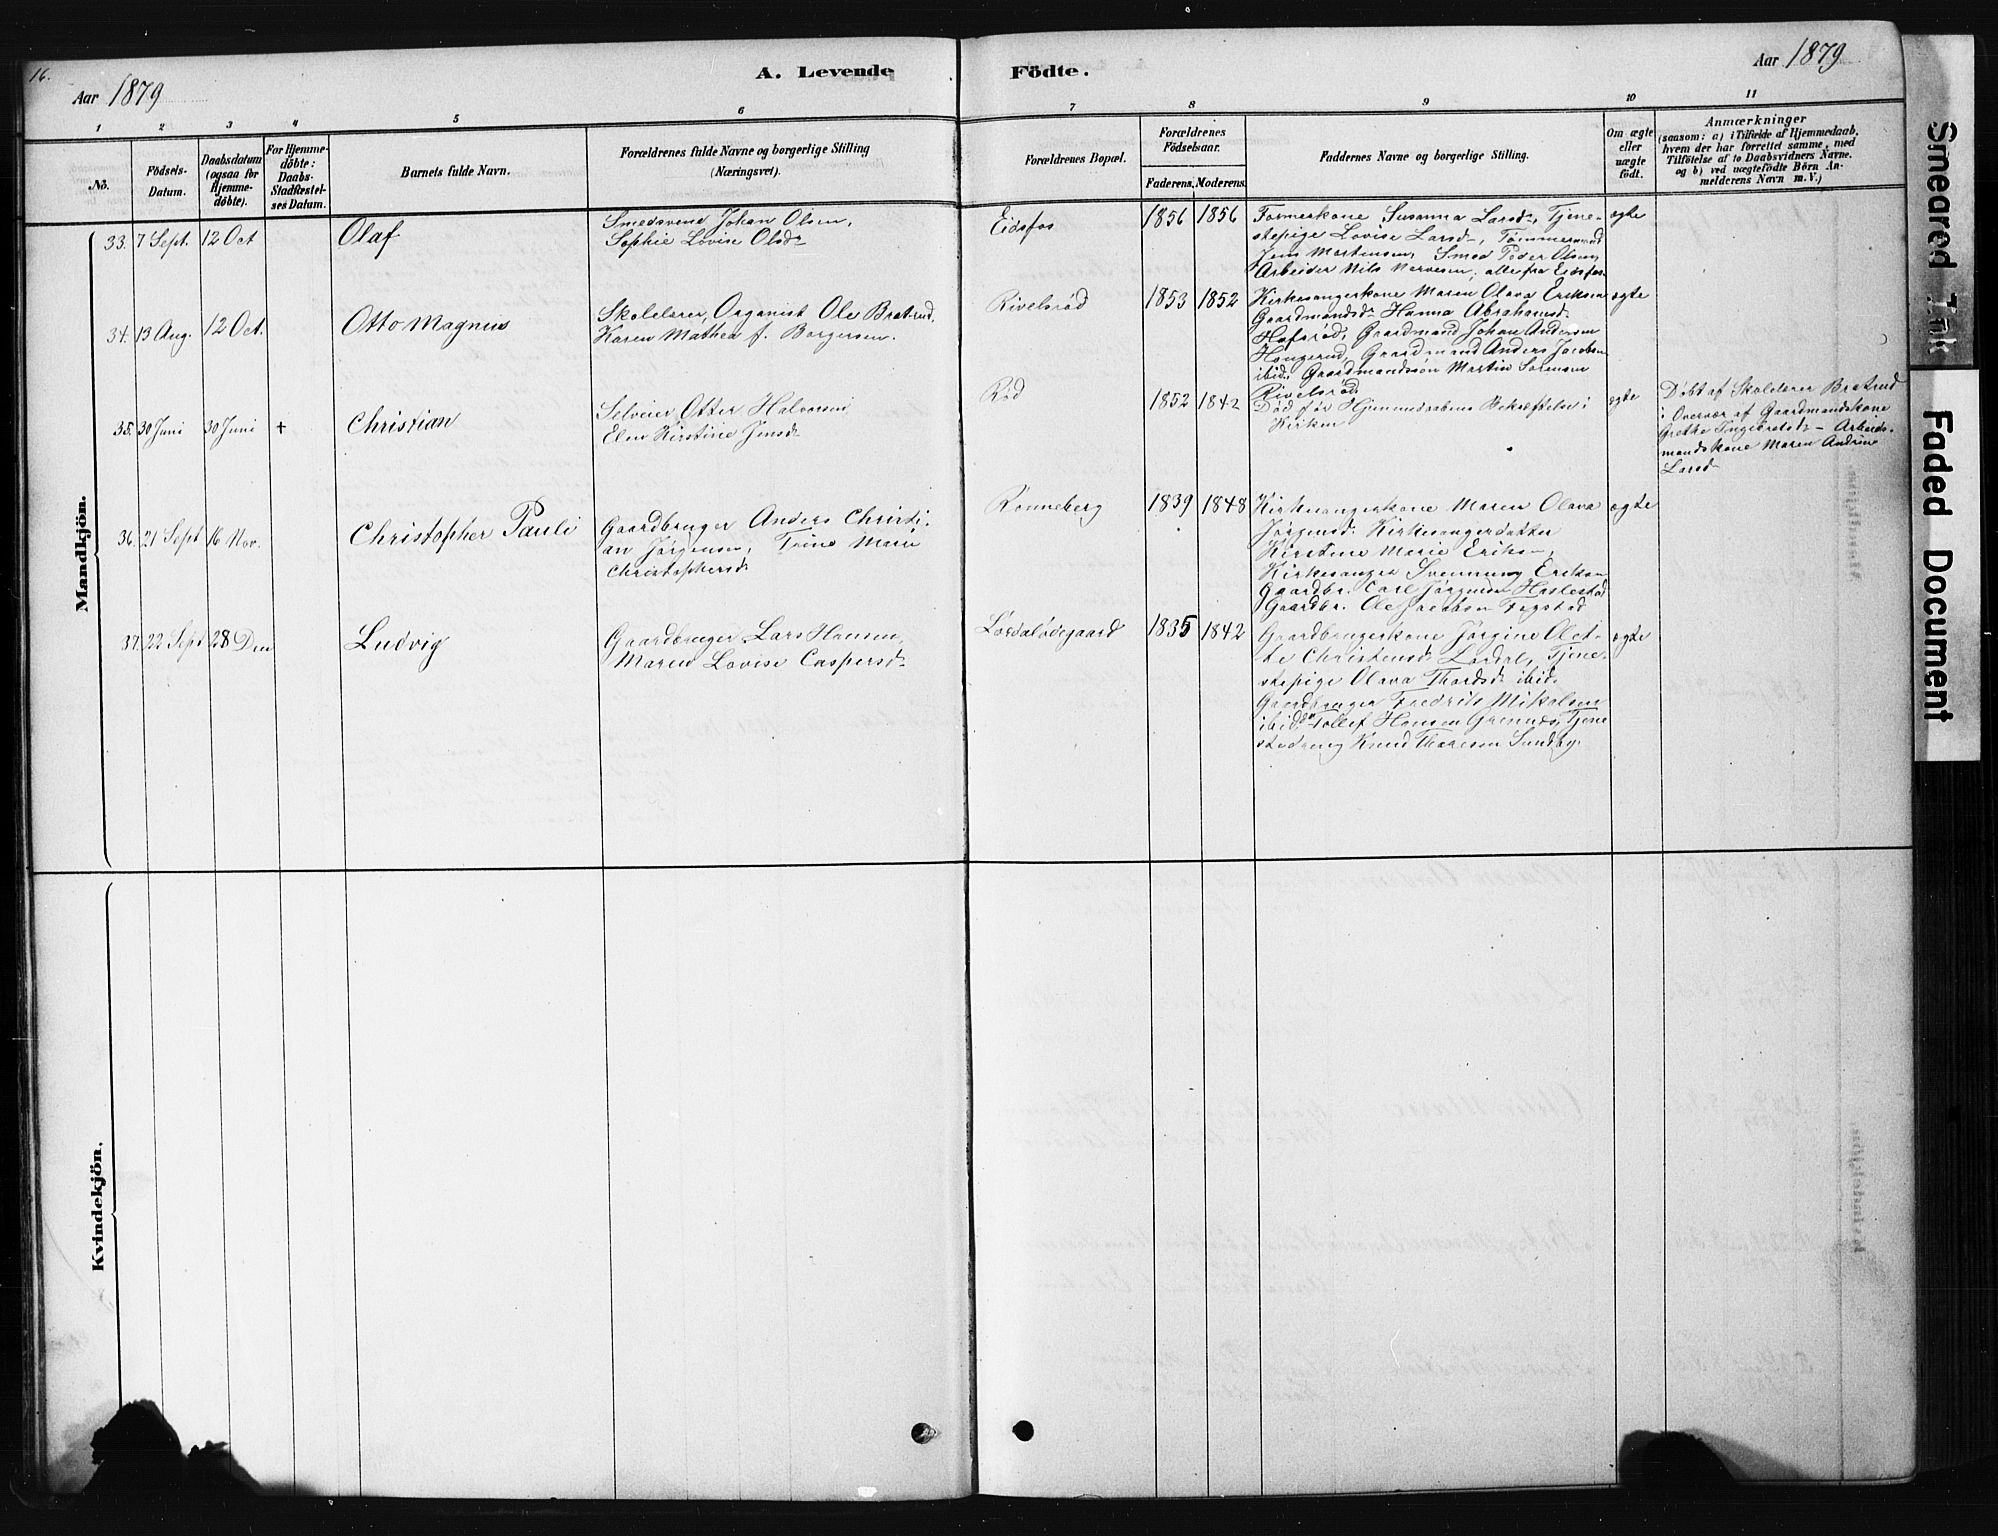 16.
Aar 1879
A. Levende
Födte.
Aar 1879
1 2 3 4 5 6 7 8 9 10 11
No.
Födsels-
Datum.
Daabsdatum
(ogsaa for
Hjemme-
döbte).
For Hjemme-
döbte:
Daabs-
Stadfæstel-
ses Datum.
Barnets fulde Navn.
Forældrenes fulde Navne og borgerlige Stilling
(Næringsvei).
Forældrenes Bopæl.
Forældrenes
Födselsaar.
Faderens. Moderens.
Faddernes Navne og borgerlige Stilling.
Om ægte
eller
uægte
födt.
Anmærkninger
(saasom: a) i Tilfælde af Hjemmedaab,
hvem der har forrettet samme, med
Tilföielse af to Daabsvidners Navne.
og b) ved uægtefödte Börn An-
melderens Navn m. V.)
Mandkjön.
33. 7 Sept. 12 Oct Olaf
Smedsvend Johan Olsen,
Sophie Lovise Olsd.
Eidsfos 1856 1856
Formerkone Susanna Larsd., Tjene-
stepige Lovise Larsd., Tømmermand
Jens Martensen, Smed Peder Olsen,
Arbeider Nils Narvesen, alle fra Eidsfos.
ægte
34. 13 Aug. 12 Oct. Otto Magnus
Skolelærer, Organist Ole Bratrud,
Karen Mathea f. Borgersen.
Rivelsrød 1853 1852
Kirkesangerkone Maren Olava Eriksen
Gaardmandsd. Hanna Abrahamsd.
Hafsrød, Gaardmand Johan Andersen
Hongerud, Gaardmand Anders Jacobsen
ibid. Gaardmandssøn Martin Sørensen
Rivelsrød
ægte
35. 30 Juni 30 Juni † Christian
Selveier Otter Halvorsen,
Elen Kirstine Jensd.
Rød 1852 1842
Død før Hjemmedaabens Bekræftelse i
Kirken
ægte
Døbt af Skolelærer Bratrud
i Overvær af Gaardmandskone
Grethe Ingebretsd. – Arbeids-
mandskone Maren Andrine
Larsd.
36. 21 Sept 16 Nov. Christopher Pauli
Gaardbruger Anders Christi-
an Jørgensen, Trine Marie
Christophersd.
Ronneberg 1839 1848
Kirkesangerkone Maren Olava
Jørgensd. Kirkesangerdatter
Kirstine Marie Eriksen,
Kirkesanger Svennung Eriksen
Gaardbr. Carl Jørgensen Haslestad
Gaardbr. Ole Jacobsen Fegstad
ægte
37. 22 Sept 28 Dec Ludvig
Gaardbruger Lars Hansen,
Maren Lovise Caspersd.
Løsdalødegaard 1835 1842
Gaardbrugerkone Jørgine Olet-
te Christensd. Løsdal, Tjene-
stepige Olava Thordsd. ibid.
Gaardbruger Fredrik Mikalsen
ibid. Tollef Hansen Grennes, Tjene
stedreng Knud Thoresen Sundby.
ægte
Kvindekjön.
Smeared Ink
Faded Document